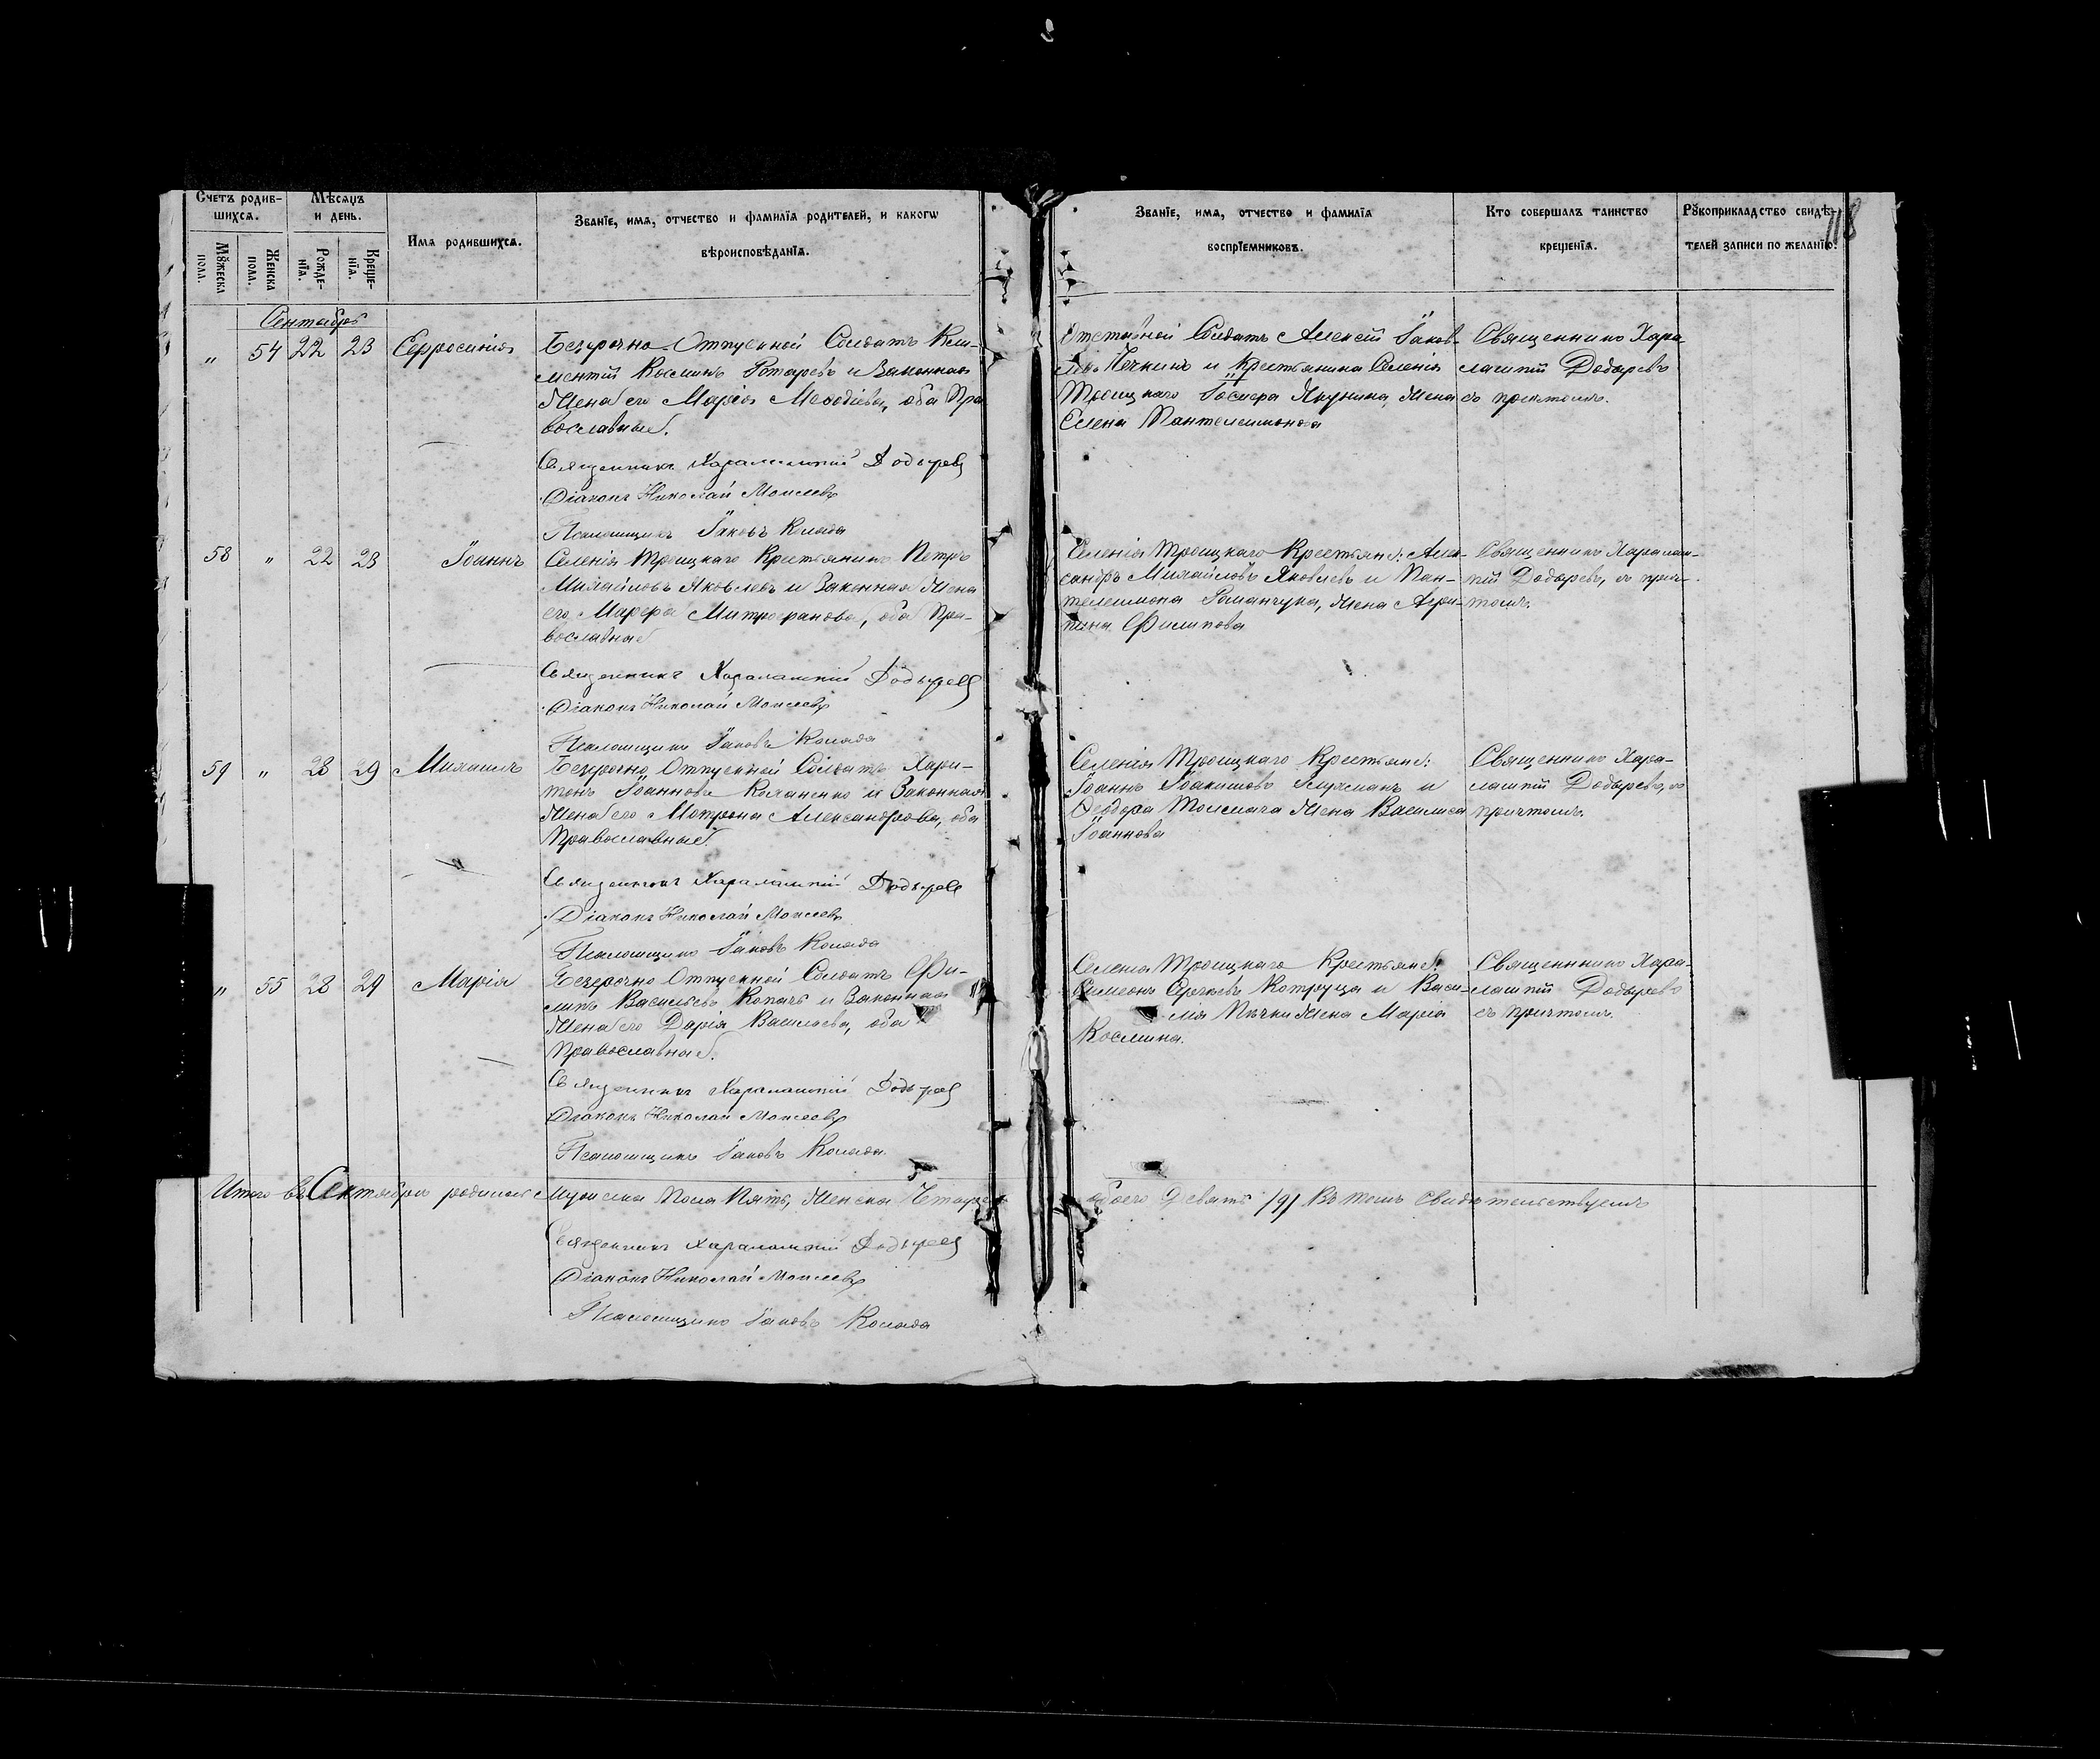 118
Счетъ родив-
шихся.
Мѣсяцъ
и день.
Мꙋжеска
пола.
Женска
пола.
Рожде-
нїя.
Креще-
нїя.
Имя родившихся.
Званїе, имя, отчество и фамилїя родителей, и какогѡ
вѣроисповѣданїя.
Званїе, имя, отчество и фамилїя
воспрїемниковъ.
Кто совершалъ таинство
крещенїя.
Рꙋкоприкладство свидѣ-
телей записи по желанїю.
Сентябрь
" 54 22 23 Ефросинія
Безсрочно-Отпускной Солдатъ Кли-
ментій Косминъ Ротаревъ и Законная
Жена его Марія Меѳодіева, оба Пра
вославные.
Священникъ Харалампій Додыревъ
Діаконъ Николай Моисеевъ
Псаломщикъ Іаковъ Колада
Отставной Солдатъ Алексій Іаков-
левъ Печкинъ и Крестьянина Селенія
Троицкаго Якунина Жена
Елена Пантелеимонова
Священникъ Хара
лампій Додыревъ
съ причтомъ.
58 " 22 23 Іоаннъ
Селенія Троицкаго Крестьянинъ Петръ
Михайловъ Яковлевъ и Законная Жена
его Марфа Митрофанова, оба Пра-
вославные
Священникъ Харалампій Додыревъ
Діаконъ Николай Моисеевъ
Псаломщикъ Іаковъ Колада
Селенія Троицкаго Крестьяне: Алек-
сандръ Михайловъ Яковлевъ и Пан-
телеимона Романчука, Жена Агри-
пина Филипова
Священникъ Харалам-
пій Додыревъ, съ прич-
томъ.
59 " 28 29 Михаилъ
Безсрочно Отпускной Солдатъ Хари-
тонъ Іоанновъ и Законная
Жена его Матрона Александрова, оба
Православные.
Священникъ Харалампій Додыревъ
Діаконъ Николай Моисеевъ
Псаломщикъ Іаковъ Колада
Селенія Троицкаго Крестьяне:
Іоаннъ Іоакимовъ и
Ѳеодора Толмача Жена Василиса
Іоаннова
Священникъ Хара-
лампій Додыревъ, съ
причтомъ.
" 55 28 29 Марія
Безсрочно Отпускной Солдатъ Фи-
липъ Васильевъ Копачъ и Законная
Жена его Дарія Васильева, оба
Православные.
Священникъ Харалампій Додыревъ
Діаконъ Николай Моисеевъ
Псаломщикъ Іаковъ Колада
Селенія Троицкаго Крестьяне:
Симеонъ Сергіевъ Котруца и Васи-
лія Пычки Жена Марія
Космина.
Священникъ Хара-
лампій Додыревъ
съ причтомъ.
Итого въ Сентябрѣ родилось Мужеска Пола Пять, Женска Четыре обоего Девять /9/ Въ томъ Свидѣтельствуемъ
Священникъ Харалампій Додыревъ
Діаконъ Николай Моисеевъ
Псаломщикъ Іаковъ Колада